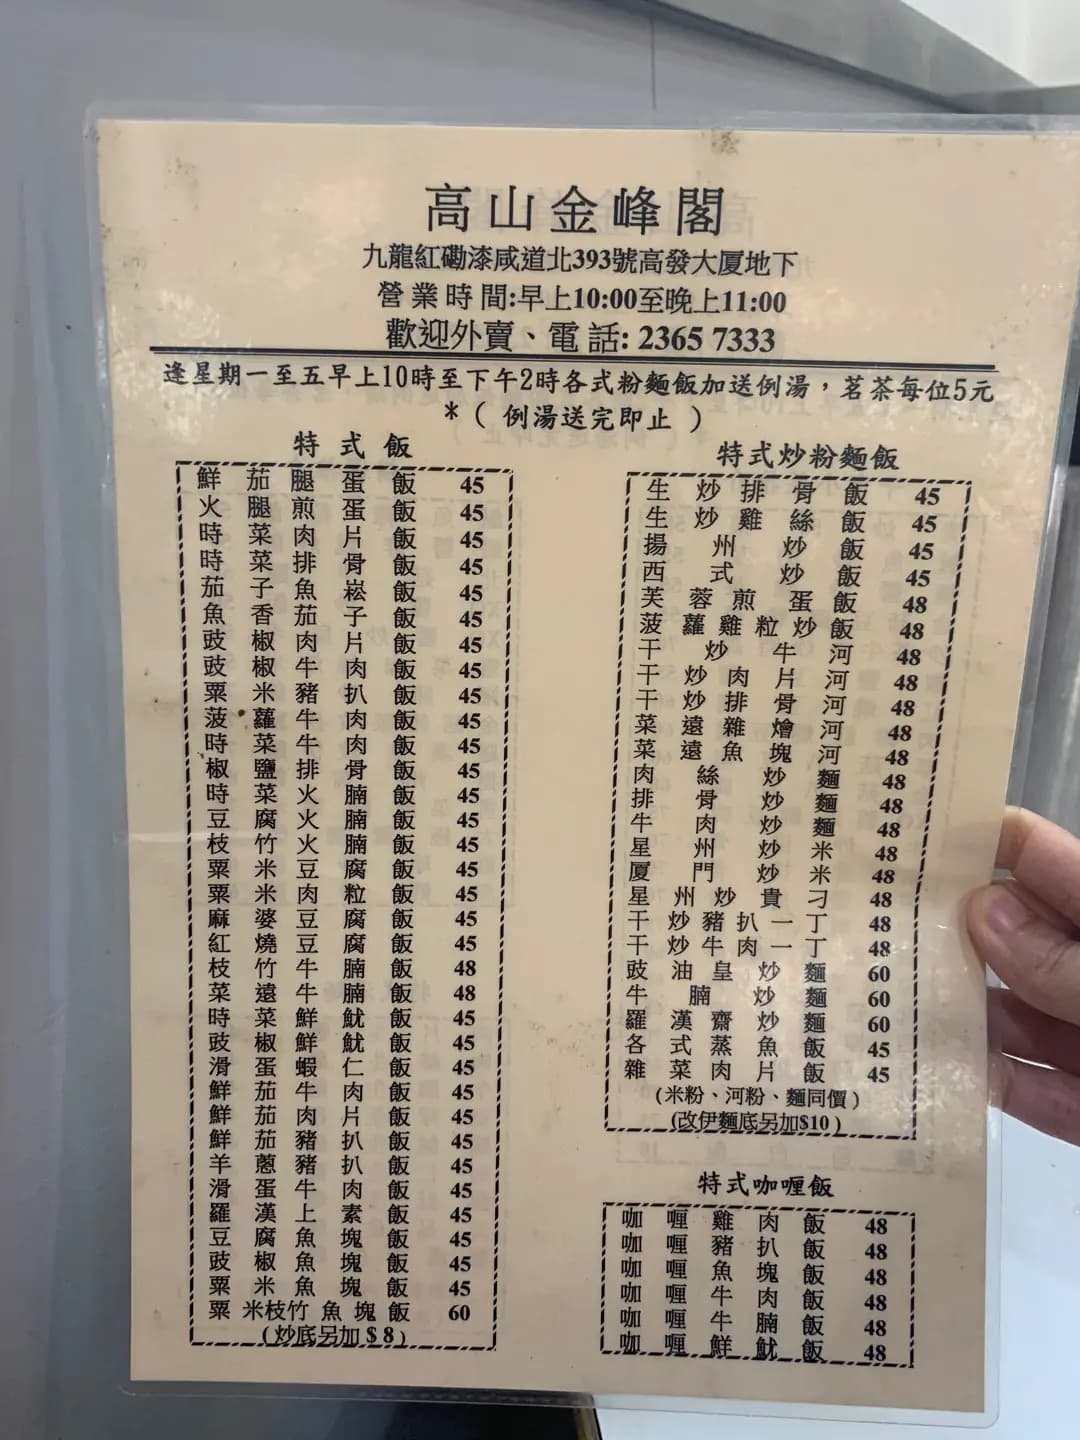 高山金峰閣
九龍紅磡漆咸道北393號高發大厦地下
營業時間:早上10:00至晚上11:00
歡迎外賣、電話: 2365 7333
逢星期一至五早上10時至下午2時各式粉麵飯加送例湯，茗茶每位5元
*( 例湯送完即止 )
特式飯
鮮茄腿蛋飯 45
火腿煎蛋飯 45
時菜肉片飯 45
時菜排骨飯 45
茄子魚崧飯 45
魚香茄子飯 45
豉椒肉片飯 45
豉椒牛肉飯 45
粟米豬扒飯 45
菠蘿牛肉飯 45
時菜牛肉飯 45
椒鹽排骨飯 45
時菜火腩飯 45
豆腐火腩飯 45
枝竹火腩飯 45
粟米豆腐飯 45
粟米肉粒飯 45
麻婆豆腐飯 45
紅燒豆腐飯 45
枝竹牛腩飯 48
菜遠牛腩飯 48
時菜鮮魷飯 45
豉椒鮮魷飯 45
滑蛋蝦仁飯 45
鮮茄牛肉飯 45
鮮茄肉片飯 45
鮮茄豬扒飯 45
羊蔥豬扒飯 45
滑蛋牛肉飯 45
羅漢上素飯 45
豆腐魚塊飯 45
豉椒魚塊飯 45
粟米魚塊飯 45
粟米枝竹魚塊飯 60
(炒底另加 $ 8)
特式炒粉麵飯
生炒排骨飯 45
生炒雞絲飯 45
揚州炒飯 45
西式炒飯 45
芙蓉煎蛋飯 48
菠蘿雞粒炒飯 48
干炒牛河 48
干炒肉片河 48
干炒排骨河 48
菜遠雜燴河 48
菜遠魚塊河 48
肉絲炒麵 48
排骨炒麵 48
牛肉炒麵 48
星州炒米 48
厦門炒米 48
星州炒貴刁 48
干炒豬扒一丁 48
干炒牛肉一丁 48
豉油皇炒麵 60
牛腩炒麵 60
羅漢齋炒麵 60
各式蒸魚飯 45
雜菜肉片飯 45
(米粉、河粉、麵同價)
(改伊麵底另加$10)
特式咖喱飯
咖喱雞肉飯 48
咖喱豬扒飯 48
咖喱魚塊飯 48
咖喱牛肉飯 48
咖喱牛腩飯 48
咖喱鮮魷飯 48